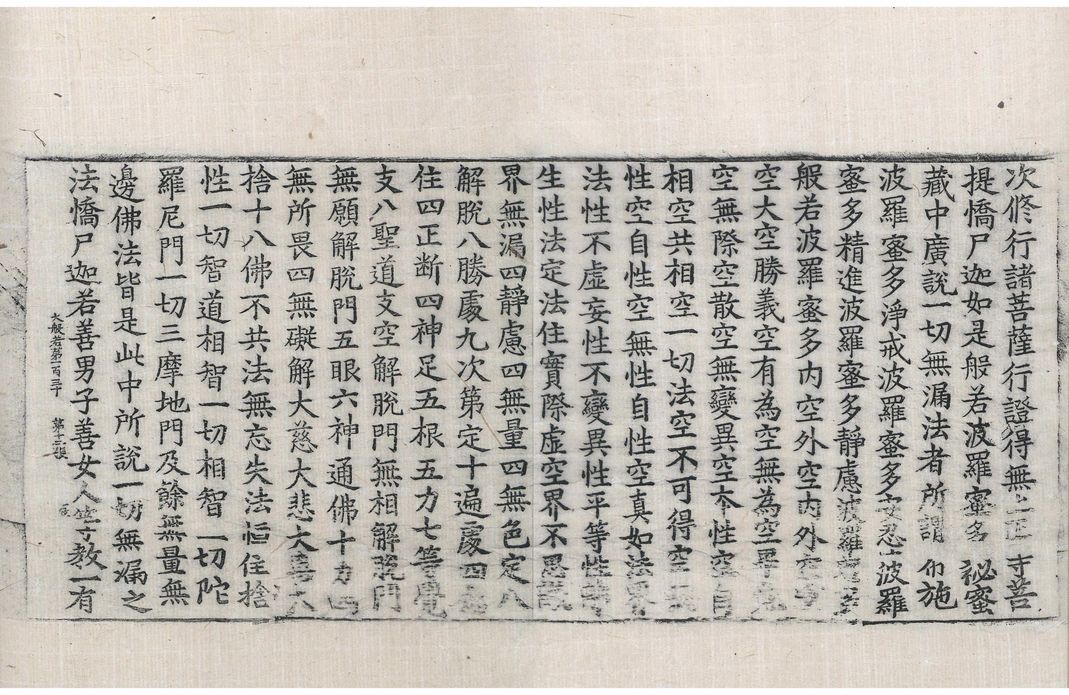 次修行諸菩薩行證得無上正 等菩
提憍尸迦如是般若波羅蜜多 祕蜜
藏中廣說一切無漏法者所謂 布施
波羅蜜多淨戒波羅蜜多安忍波羅
蜜多精進波羅蜜多靜慮波羅蜜多
般若波羅蜜多內空外空內外空空
空大空勝義空有為空無為空畢竟
空無際空散空無變異空本性空自
相空共相空一切法空不可得空無
性空自性空無性自性空真如法界
法性不虛妄性不變異性平等性離
生性法定法住實際虛空界不思議
界無漏四靜慮四無量四無色定八
解脫八勝處九次第定十遍處四念
住四正断四神足五根五力七等覺
支八聖道支空解脫門無相解脫門
無願解脫門五眼六神通佛十力四
無所畏四無礙解大慈大悲大喜大
捨十八佛不共法無忘失法恒住捨
性一切智道相智一切相智一切陀
羅尼門一切三摩地門及餘無量無
邊佛法皆是此中所說一切無漏之
法憍尸迦若善男子善女人等教一有
大般若第一百三十 第十二張